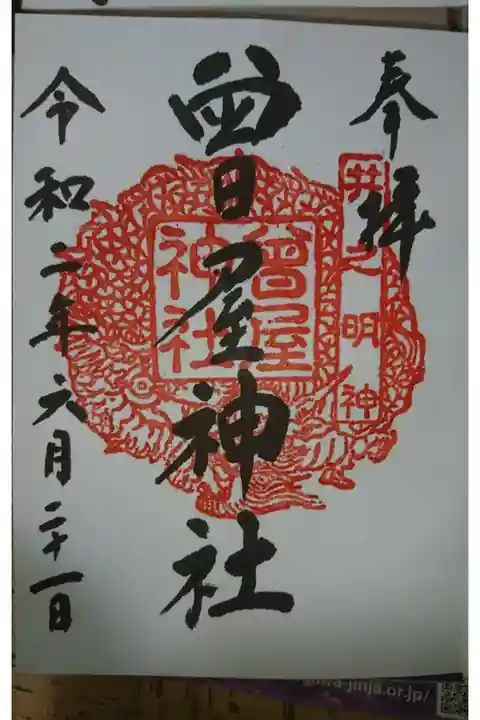 奉拝
井之明神
曽屋神社
曾屋神社
令和二年六月二十一日
wa-jinja.or.jp/